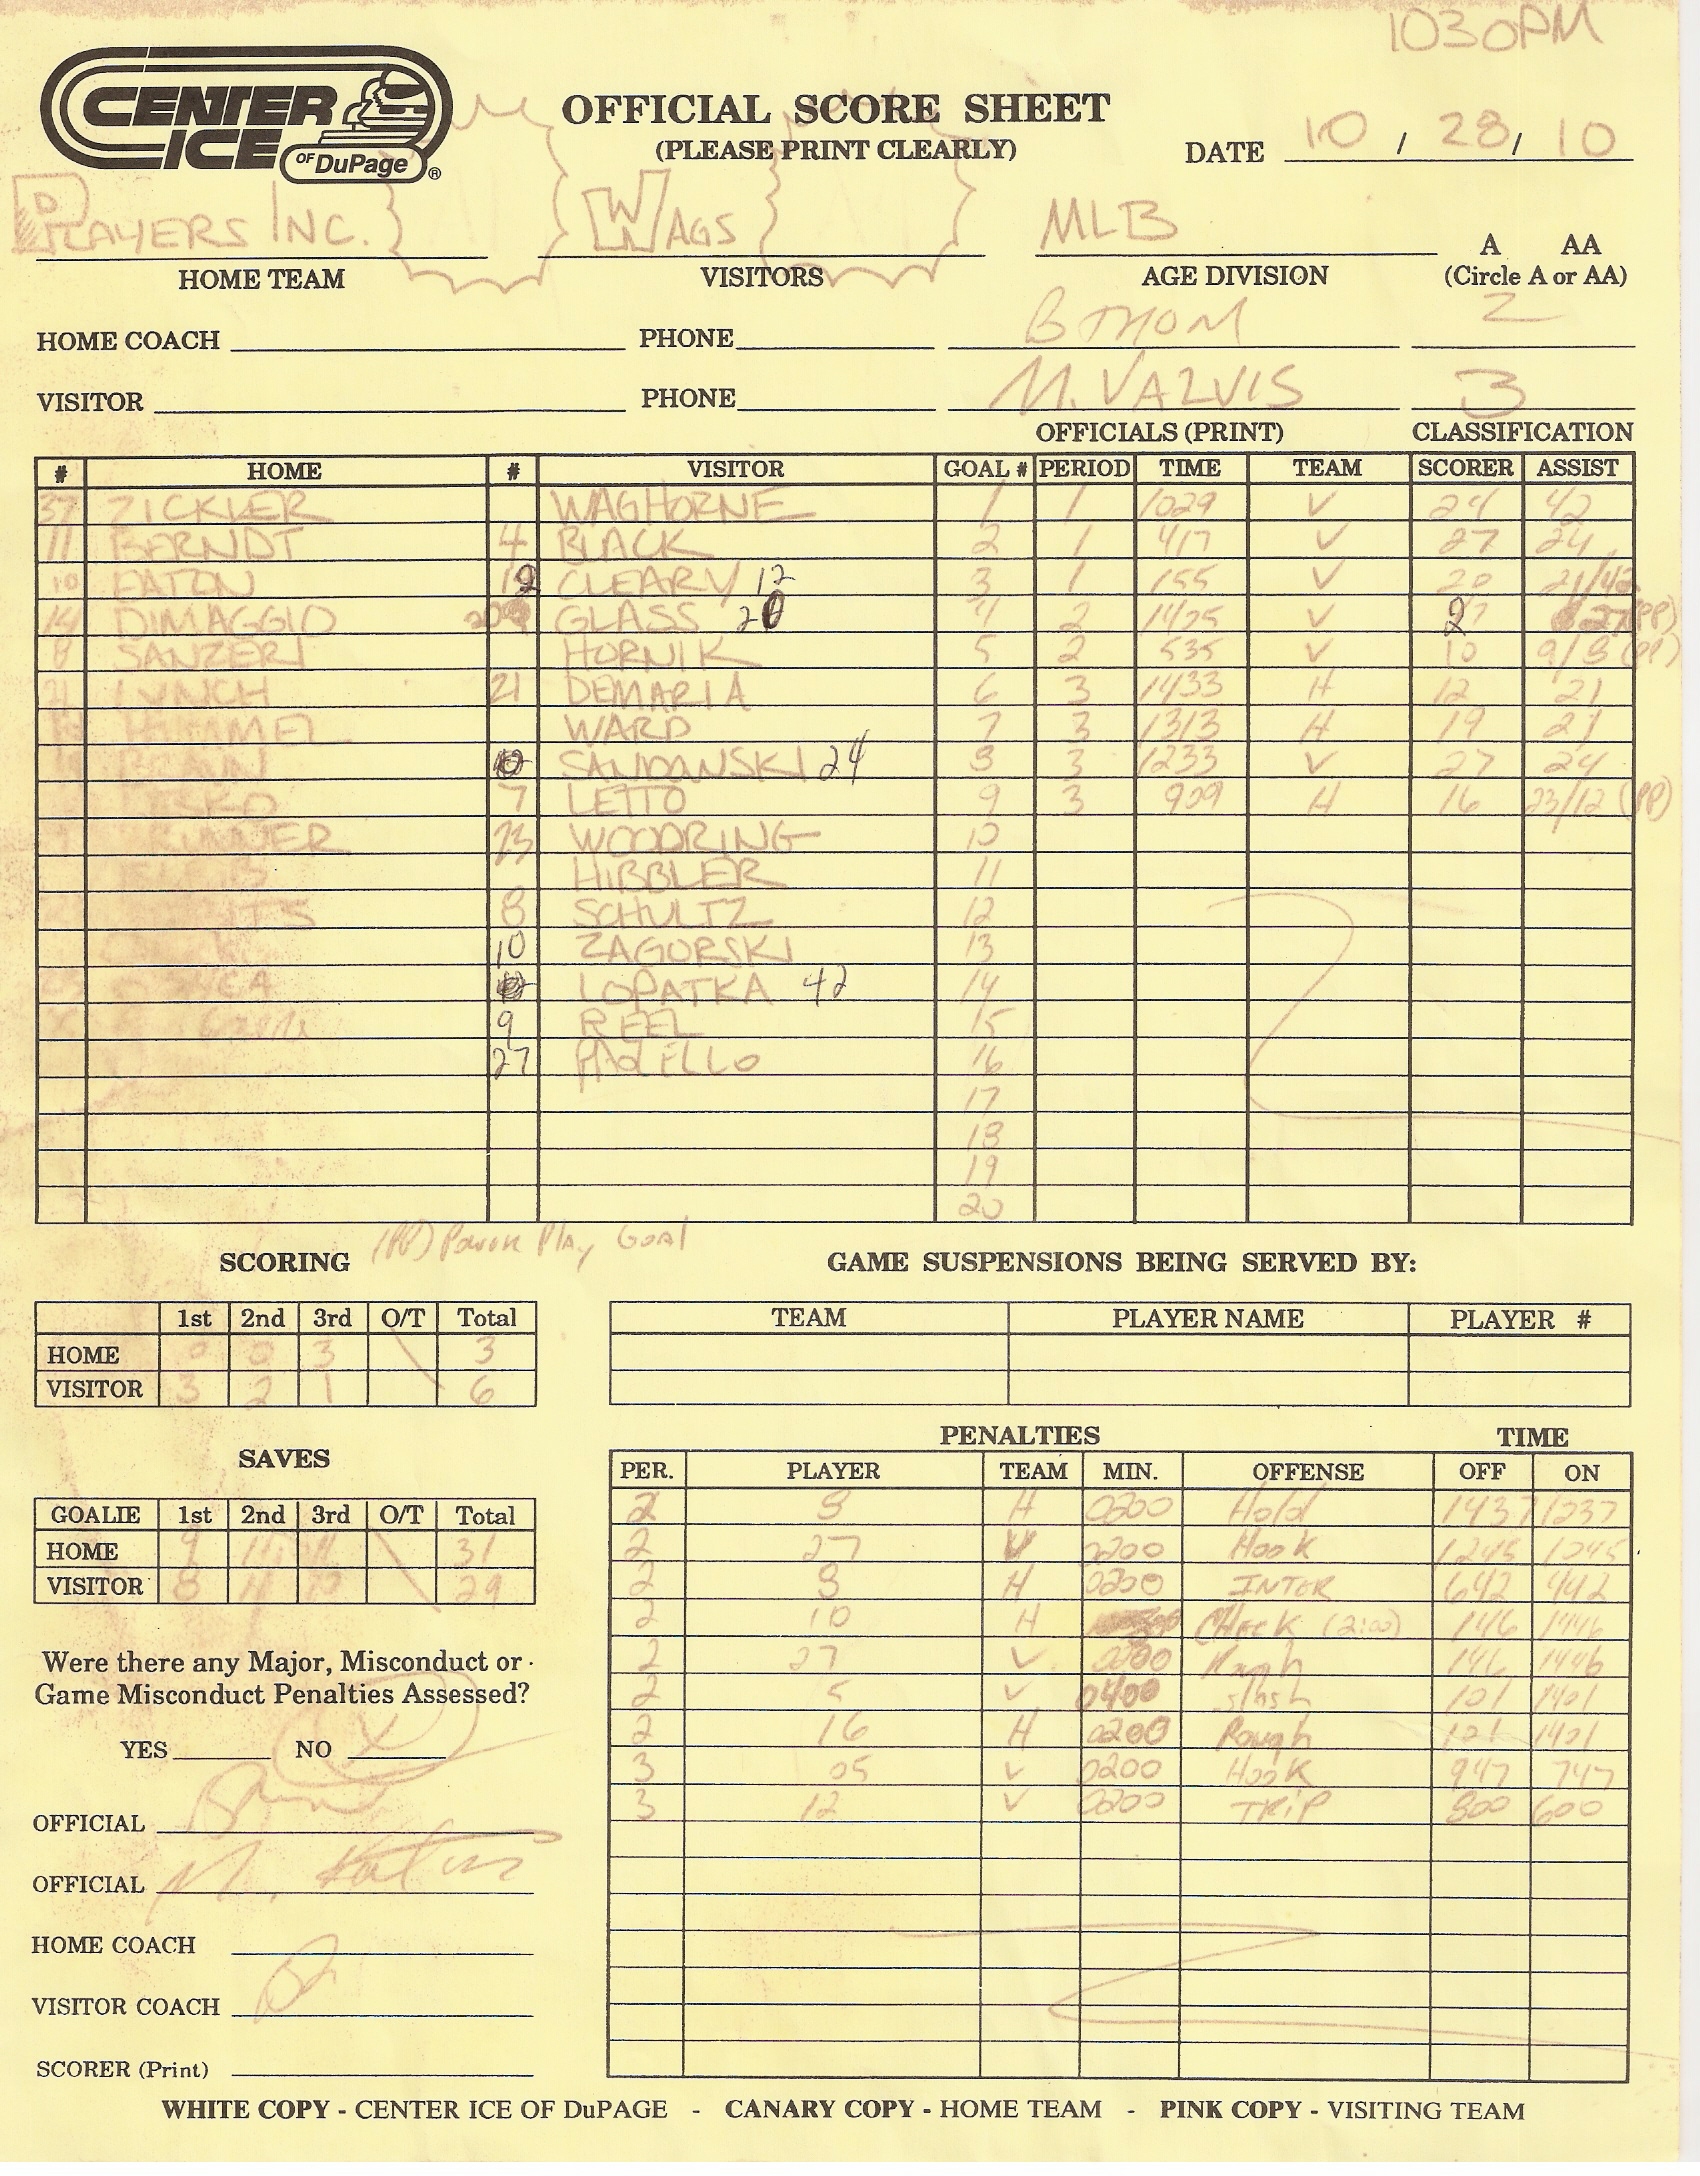 1030PM
CENTER ICE OF DuPage ®
OFFICIAL SCORE SHEET
(PLEASE PRINT CLEARLY)
DATE 10 / 28 / 10
PLAYERS INC. WAGS MLB A AA
HOME TEAM VISITORS AGE DIVISION (Circle A or AA)
HOME COACH PHONE B THOM 2
VISITOR PHONE M. VALVIS 3
OFFICIALS (PRINT) CLASSIFICATION
# HOME # VISITOR GOAL # PERIOD TIME TEAM SCORER ASSIST
37 ZICKLER WAGHORNE 1 1 1029 V 24 42
11 BERNDT 4 BLACK 2 1 417 V 27 24
10 EATON 12 CLEARY 12 3 1 155 V 20 21/42
14 DIMAGGIO GLASS 20 4 2 1425 V 27 (PP)
8 SANZERI HORNIK 5 2 535 V 10 9/8 (PP)
21 LYNCH 21 DEMARIA 6 3 1433 H 12 21
HIMMEL WARD 7 3 1313 H 19 21
SANDANSKI 24 8 3 1233 V 27 24
7 LETTO 9 3 909 H 16 23/12 (PP)
23 WOODRING 10
HIBBLER 11
8 SCHULTZ 12
10 ZAGORSKI 13
LOPATKA 42 14
9 REEL 15
27 PAOLELLO 16
17
18
19
20
SCORING (PP) Power Play Goal
GAME SUSPENSIONS BEING SERVED BY:
1st 2nd 3rd O/T Total TEAM PLAYER NAME PLAYER #
HOME 0 0 3 3
VISITOR 3 2 1 6
PENALTIES TIME
SAVES
PER. PLAYER TEAM MIN. OFFENSE OFF ON
2 8 H 0200 Hold 1437 1237
2 27 V 0200 Hook 1245 1045
2 8 H 0200 INTER 642 442
2 10 H CHECK (2:00) 146 1446
2 27 V 0200 Rough 146 1446
2 5 V 0400 slash 101 1401
2 16 H 0200 Rough 121 1421
3 05 V 0200 HOOK 947 747
3 12 V 0200 TRIP 800 600
GOALIE 1st 2nd 3rd O/T Total
HOME 9 11 11 31
VISITOR 8 11 10 29
Were there any Major, Misconduct or
Game Misconduct Penalties Assessed?
YES NO X
OFFICIAL
OFFICIAL
HOME COACH
VISITOR COACH
SCORER (Print)
WHITE COPY - CENTER ICE OF DuPAGE - CANARY COPY - HOME TEAM - PINK COPY - VISITING TEAM